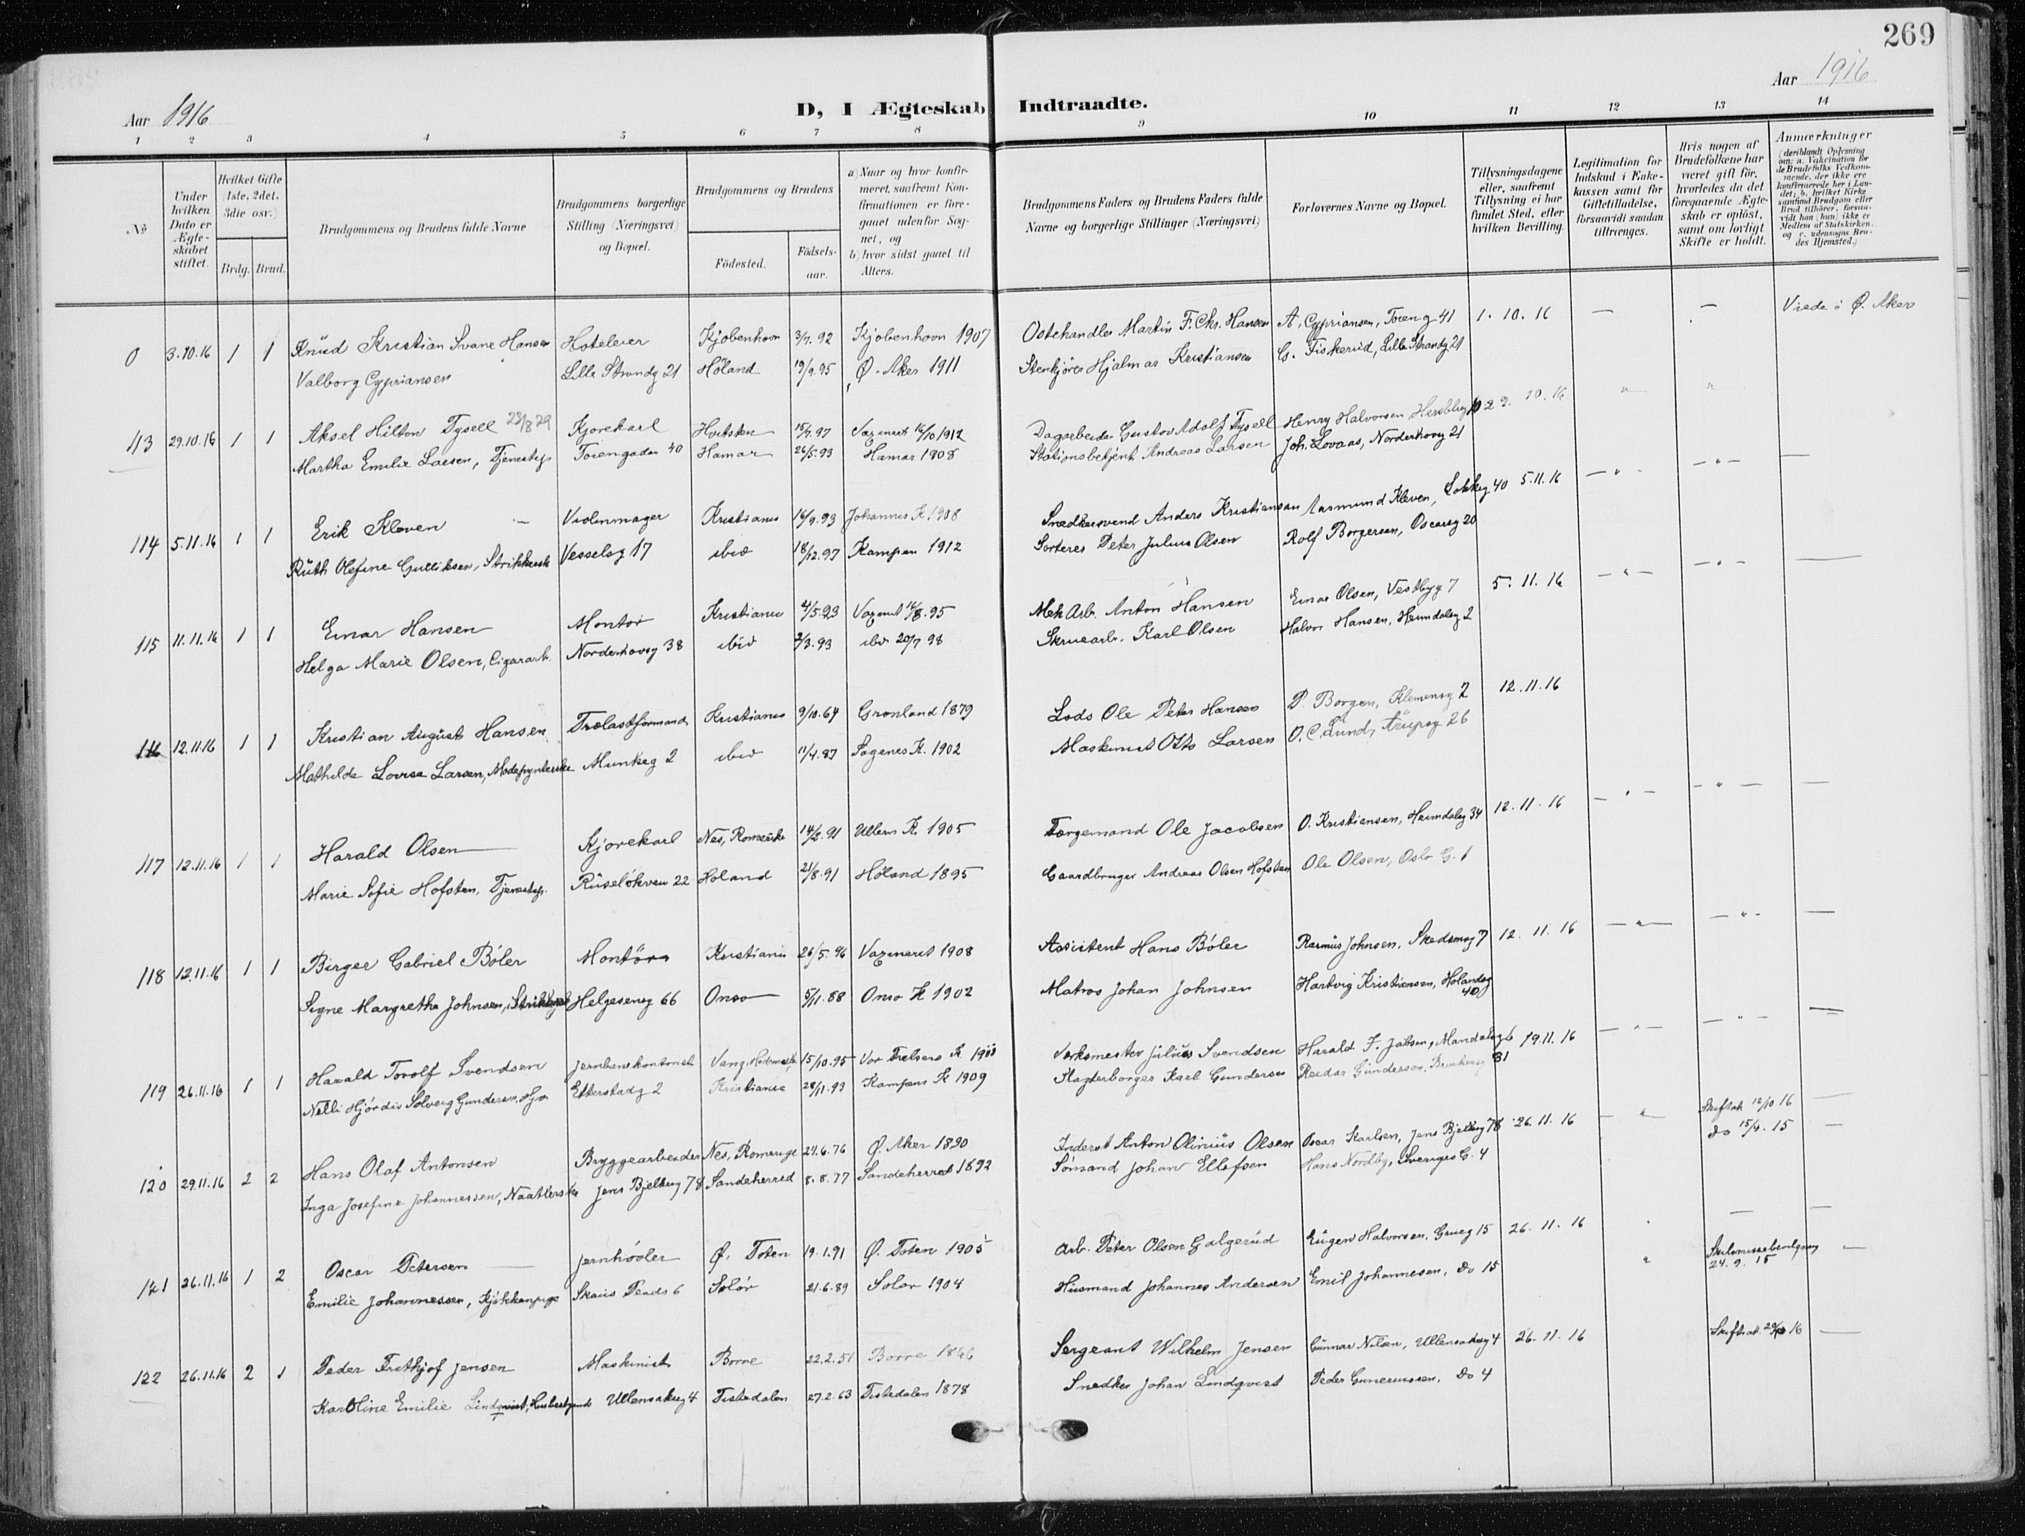 269
Aar 1916
Aar 1916
D, I Ægteskab Indtraadte.
1 2 3 4 5 6 7 8 9 10 11 12 13 14
No
Under hvilken Dato er Ægte-skabet stiftet.
Hvilket Gifte (1ste, 2det, 3die osv.)
Brdg. Brud.
Brudgommens og Brudens fulde Navne
Brudgommens borgerlige Stilling (Næringsvei) og Bopæl.
Brudgommens og Brudens
Födested.
Födsels-aar.
a) Naar og hvor konfir-meret, saafremt Kon-firmationen er fore-gaaet udenfor Sog-net, og
b) hvor sidst gaaet til Alters.
Brudgommens Faders og Brudens Faders fulde Navne og borgerlige Stillinger (Næringsvei)
Forlovernes Navne og Bopæl.
Tillysningsdagene eller, saafremt Tillysning ei har fundet Sted, efter hvilken Bevilling.
Legitimation for Indskud i Enke-kassen samt for Giftetilladelse, forsaavidt saadan tiltrænges.
Hvis nogen af Brudefolkene har været gift för, hvorledes da det foregaaende Ægte-skab er oplöst, samt om lovligt Skifte er holdt.
Anmærkninger (deriblandt Oplysning om: a. Vakcination for de Brudefolks Vedkom-mende, der ikke ere konfirmerede her i Lan-det; b. hvilket Kirke-samfund Brudgom eller Brud tilhörer, forsaa-vidt han (hun) ikke er Medlem af Statskirken, og c. udensogns Bru-des Hjemsted.)
0 3.10.16 1 1 Knud Kristian Svane Hansen Hoteleier Kjøbenhavn 3/7. 92 Kjøbenhavn 1907 Ostehandler Martin F. Chr. Hansen A. Cypriansen, Toieng 41 1. 10. 16 — — Viede i Ø. Aker
Valborg Cypriansen Lille Strandg 21 Høland 19/9.95 Ø. Aker 1911 Stenkjører Hjalmar Kristiansen G. Fiskerud, Lille Strandg 21
113 29.10.16 1 1 Aksel Hilton Tysell 23/8 79 Kjørekarl Hvitsten 15/7.97 Vor menh 14/10 1912 Dagarbeider Gustav Adolf Tysell Henry Halvorsen, 10 22. 10. 16 " "
Martha Emilie Larsen, Tjenestep Toiengaden 40 Hamar 26/5.93 Hamar 1908 Stationsbetjent Andreas Larsen Joh. Lovaas, Norderhovg 21
114 5.11.16 1 1 Erik Kleven — Violinmager Kristiania 14/9.93 Johannes K. 1908 Snedkersvend Anders Kristiansen Aasmund Kleven, 40 5.11.16 —"— —"— —
Ruth Olefine Gulliksen, Vesselsg 17 ibid 18/12.97 Kampen 1912 Sorterer Peter Julius Olsen Rolf Borgersen, Oscarsg 20
115 11.11.16 1 1 Einar Hansen Montør Kristiania 4/5.93 95 Mek Arb. Anton Hansen Einar Olsen, Vestbyg 7 5. 11. 16 —"— —"— —
Helga Marie Olsen, Cigararb. Norderhovsg 38 ibid 2/3.93 ibid 20/7 98 Skruearb. Karl Olsen Halvor Hansen, Heimdalsg 2
116 12.11.16 1 1 Kristian August Hansen Trælastformand Kristiania 9/10.64 Grønland 1879 Lods Ole Peter Hansen P. Borgen, Klemensg 2 12.11.16
Mathilde Lovise Larsen, Munkeg 2 ibid 11/4.87 Sagenes K. 1902 Maskinist Otto Larsen O. C. Lund, 26
117 12.11.16 1 1 Harald Olsen — Kjørekarl Nes, Romerike 14/2.91 Ullern K. 1905 Færgemand Ole Jacobsen O. Kristiansen, Heimdalsg 34 12.11.16 —"— —"— —
Marie Sofie Hofsten, Tjenestep. Ruseløkven 22 Høland 21/8.91 Høland 1895 Gaardbruger Andreas Olsen Hofsten Ole Olsen, Oslo G. 1
118 12.11.16 1 1 Birger Gabriel Bøler Montør Kristiania 26/5.96 1908 Assistent Hans Bøler Rasmus Johnsen, Skedsmog 7 12. 11. 16 —"— —"— —
Signe Margrethe Johnsen, Helgesensg 66 Onsø 5/11.88 Onsø K 1902 Matros Johan Johnsen Hartvig Kristiansen, Hølandsg 40
119 26.11.16 1 1 Harald Torolf Svendsen Jernbanekontorist Vang, Hedemark 15/10.95 Vor Frelsers K Værksmester Julius Svendsen Harald F. Jabsen, Mandalsg 6 19.11.16 —"— —"— —
Nelli Hjørdis Solveig Gundersen, Etterstadg 2 Kristiania 28/11.93 Kampens K 1909 Slagterborger Karl Gundersen Reidar Gundersen, 31
120 29.11.16 2 2 Hans Olaf Antonsen Bryggearbeider Nes, Romerige 24.6.76 Ø. Aker 1890 Inderst Anton Olinius Olsen Oscar Karlsen, Jens Bjelkesg 78 26.11.16 —"— Skifteat 12/10 16 —
Inga Josefine Johannessen, Jens Bjelkesg 78 Sandeherred 8.8.77 Sandeherred 1892 Sømand Johan Ellefsen Hans Nordby, Sveriges G. 4 do 15/4. 15 —
121 26.11.16 1 2 Oscar Petersen — Jernhøvler Ø. Toten 19.1.91 Ø. Toten 1905 Arb. Peter Olsen Galgerud Eugen Halvorsen, Grueg 15 26. 11. 16 " —
Emilie Johannessen, Kjøkkenpige Skaus Plads 6 Solør 21.6.89 Solør 1904 Husmand Johannes Andersen Emil Johannesen, do 15 " Skilsmissebevilgning 24.9.15 —
122 26.11.16 2 1 Peder Fretkjof Jensen Maskinist Borre 22.2.51 Borre 1866 Sergeant Wilhelm Jensen Gunnar Nilsen, Ullensakersg 4 26.11.16 Skifteat 16 —
Karoline Emilie Lindqvist, Ullensakersg 4 Tistedalen 27.2.63 Tistedalen 1878 Snedker Johan Lindqvist Peder do 4